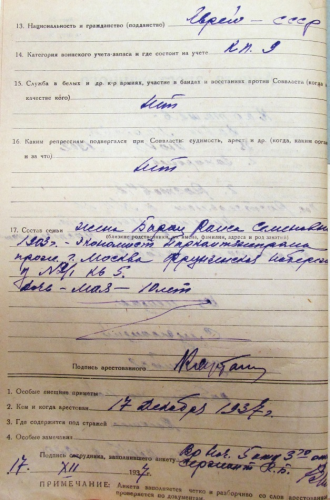 13. Национальность и гражданство (подданство) Еврей – СССР
14. Категория воинского учета-запаса и где состоит на учете КП. 9
15. Служба в белых и др. к-р армиях, участие в бандах и восстаниях против Совласти (когда и в
качестве кого)
нет
16. Каким репрессиям подвергался при Совласти: судимость, арест и др. (когда, каким
и за что)
нет
17. Состав семьи жена Баран Раиса Семеновна
(близкие родственники, их имена, фамилии, адреса и род занятий)
1903г. – экономист
прож. г. Москва Фрунзенская набереж
д № кв 5.
дочь – Мая – 10 лет
Подпись арестованного
1. Особые внешние приметы
2. Кем и когда арестован 17 декабря 1937г
3. Где содержится под стражей
4. Особые замечания
Подпись сотрудника, заполнившего анкету
сержант Г.Б.
17. XII 1937
ПРИМЕЧАНИЕ: Анкета заполняется четко и разборчиво со слов арестованного
проверяется по документам